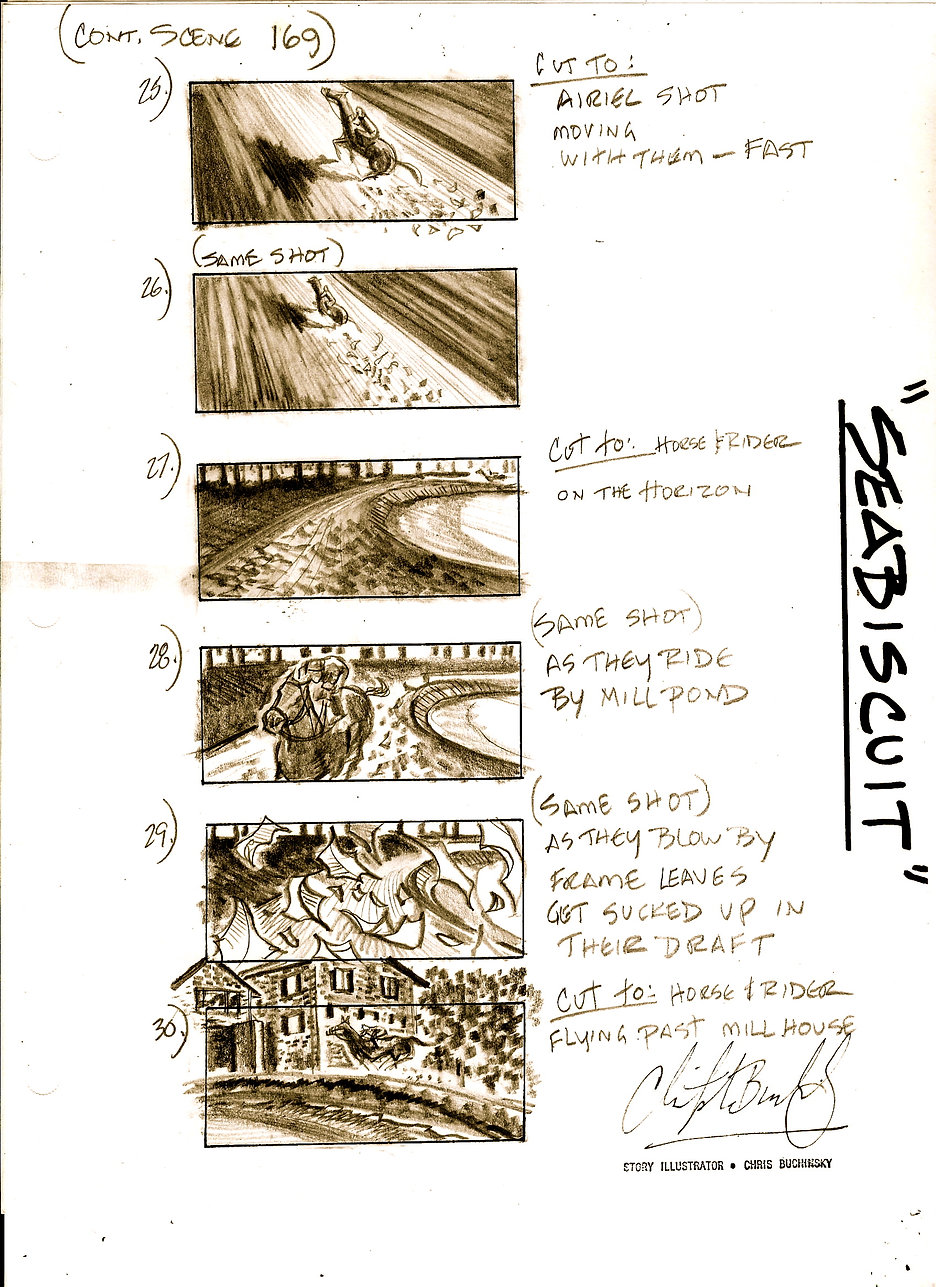 (CONT. SCENE 169)
25.)
CUT TO:
AIRIEL SHOT
MOVING
WITH THEM — FAST
(SAME SHOT)
26.)
27.)
CUT TO: HORSE & RIDER
ON THE HORIZON
28.)
(SAME SHOT)
AS THEY RIDE
BY MILL POND
29.)
(SAME SHOT)
AS THEY BLOW BY
FRAME LEAVES
GET SUCKED UP IN
THEIR DRAFT
30.)
CUT TO: HORSE & RIDER
FLYING PAST MILL HOUSE
STORY ILLUSTRATOR • CHRIS BUCHINSKY
"SEABISCUIT"